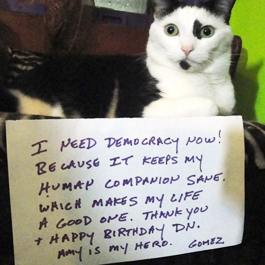 I NEED DEMOCRACY NOW!
BECAUSE IT KEEPS MY
HUMAN COMPANION SANE.
WHICH MAKES MY LIFE
A GOOD ONE. THANK YOU
+ HAPPY BIRTHDAY DN.
AMY IS MY HERO. GOMEZ